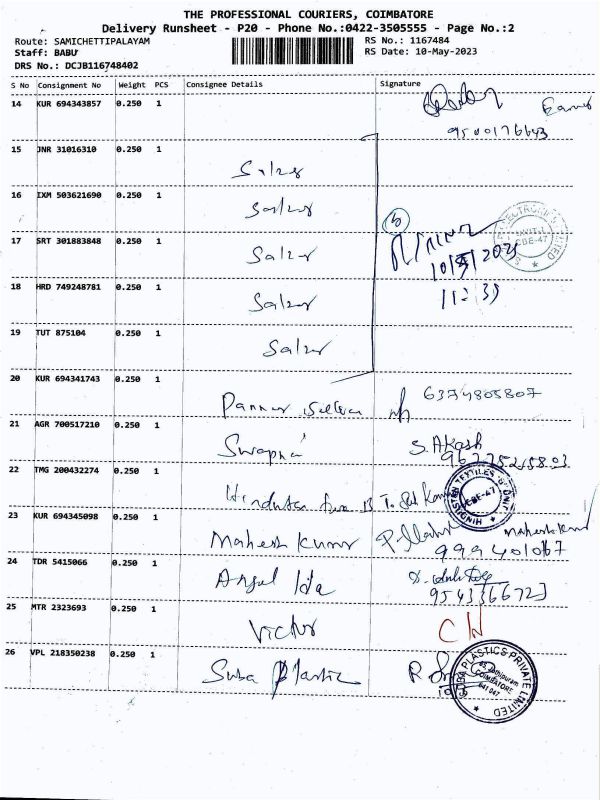 THE PROFESSIONAL COURIERS, COIMBATORE
Delivery Runsheet - P20 - Phone No.:0422-3505555 - Page No.:2
Route: SAMICHETTIPALAYAM RS No.: 1167484
Staff: BABU RS Date: 10-May-2023
DRS No.: DCJB116748402
S No Consignment No Weight PCS Consignee Details Signature
14 KUR 694343857 0.250 1
9500176643
15 JNR 31016310 0.250 1 Salzer
16 IXM 503621690 0.250 1 Salzer
5
17 SRT 301883848 0.250 1 Salzer
10/5/2023
18 HRD 749248781 0.250 1 Salzer 11:39
19 TUT 875104 0.250 1 Salzer
20 KUR 694341743 0.250 1 6374805807
21 AGR 700517210 0.250 1 Swapna S. Akash
22 TMG 200432274 0.250 1
HINDUSTAN TEXTILES
CBE-47
23 KUR 694345098 0.250 1 Mahesh Kumar
24 TDR 5415066 0.250 1
25 MTR 2323693 0.250 1 Victor
26 VPL 218350238 0.250 1 Suba Plastic
SUBA PLASTICS PRIVATE LIMITED
COIMBATORE
641 047